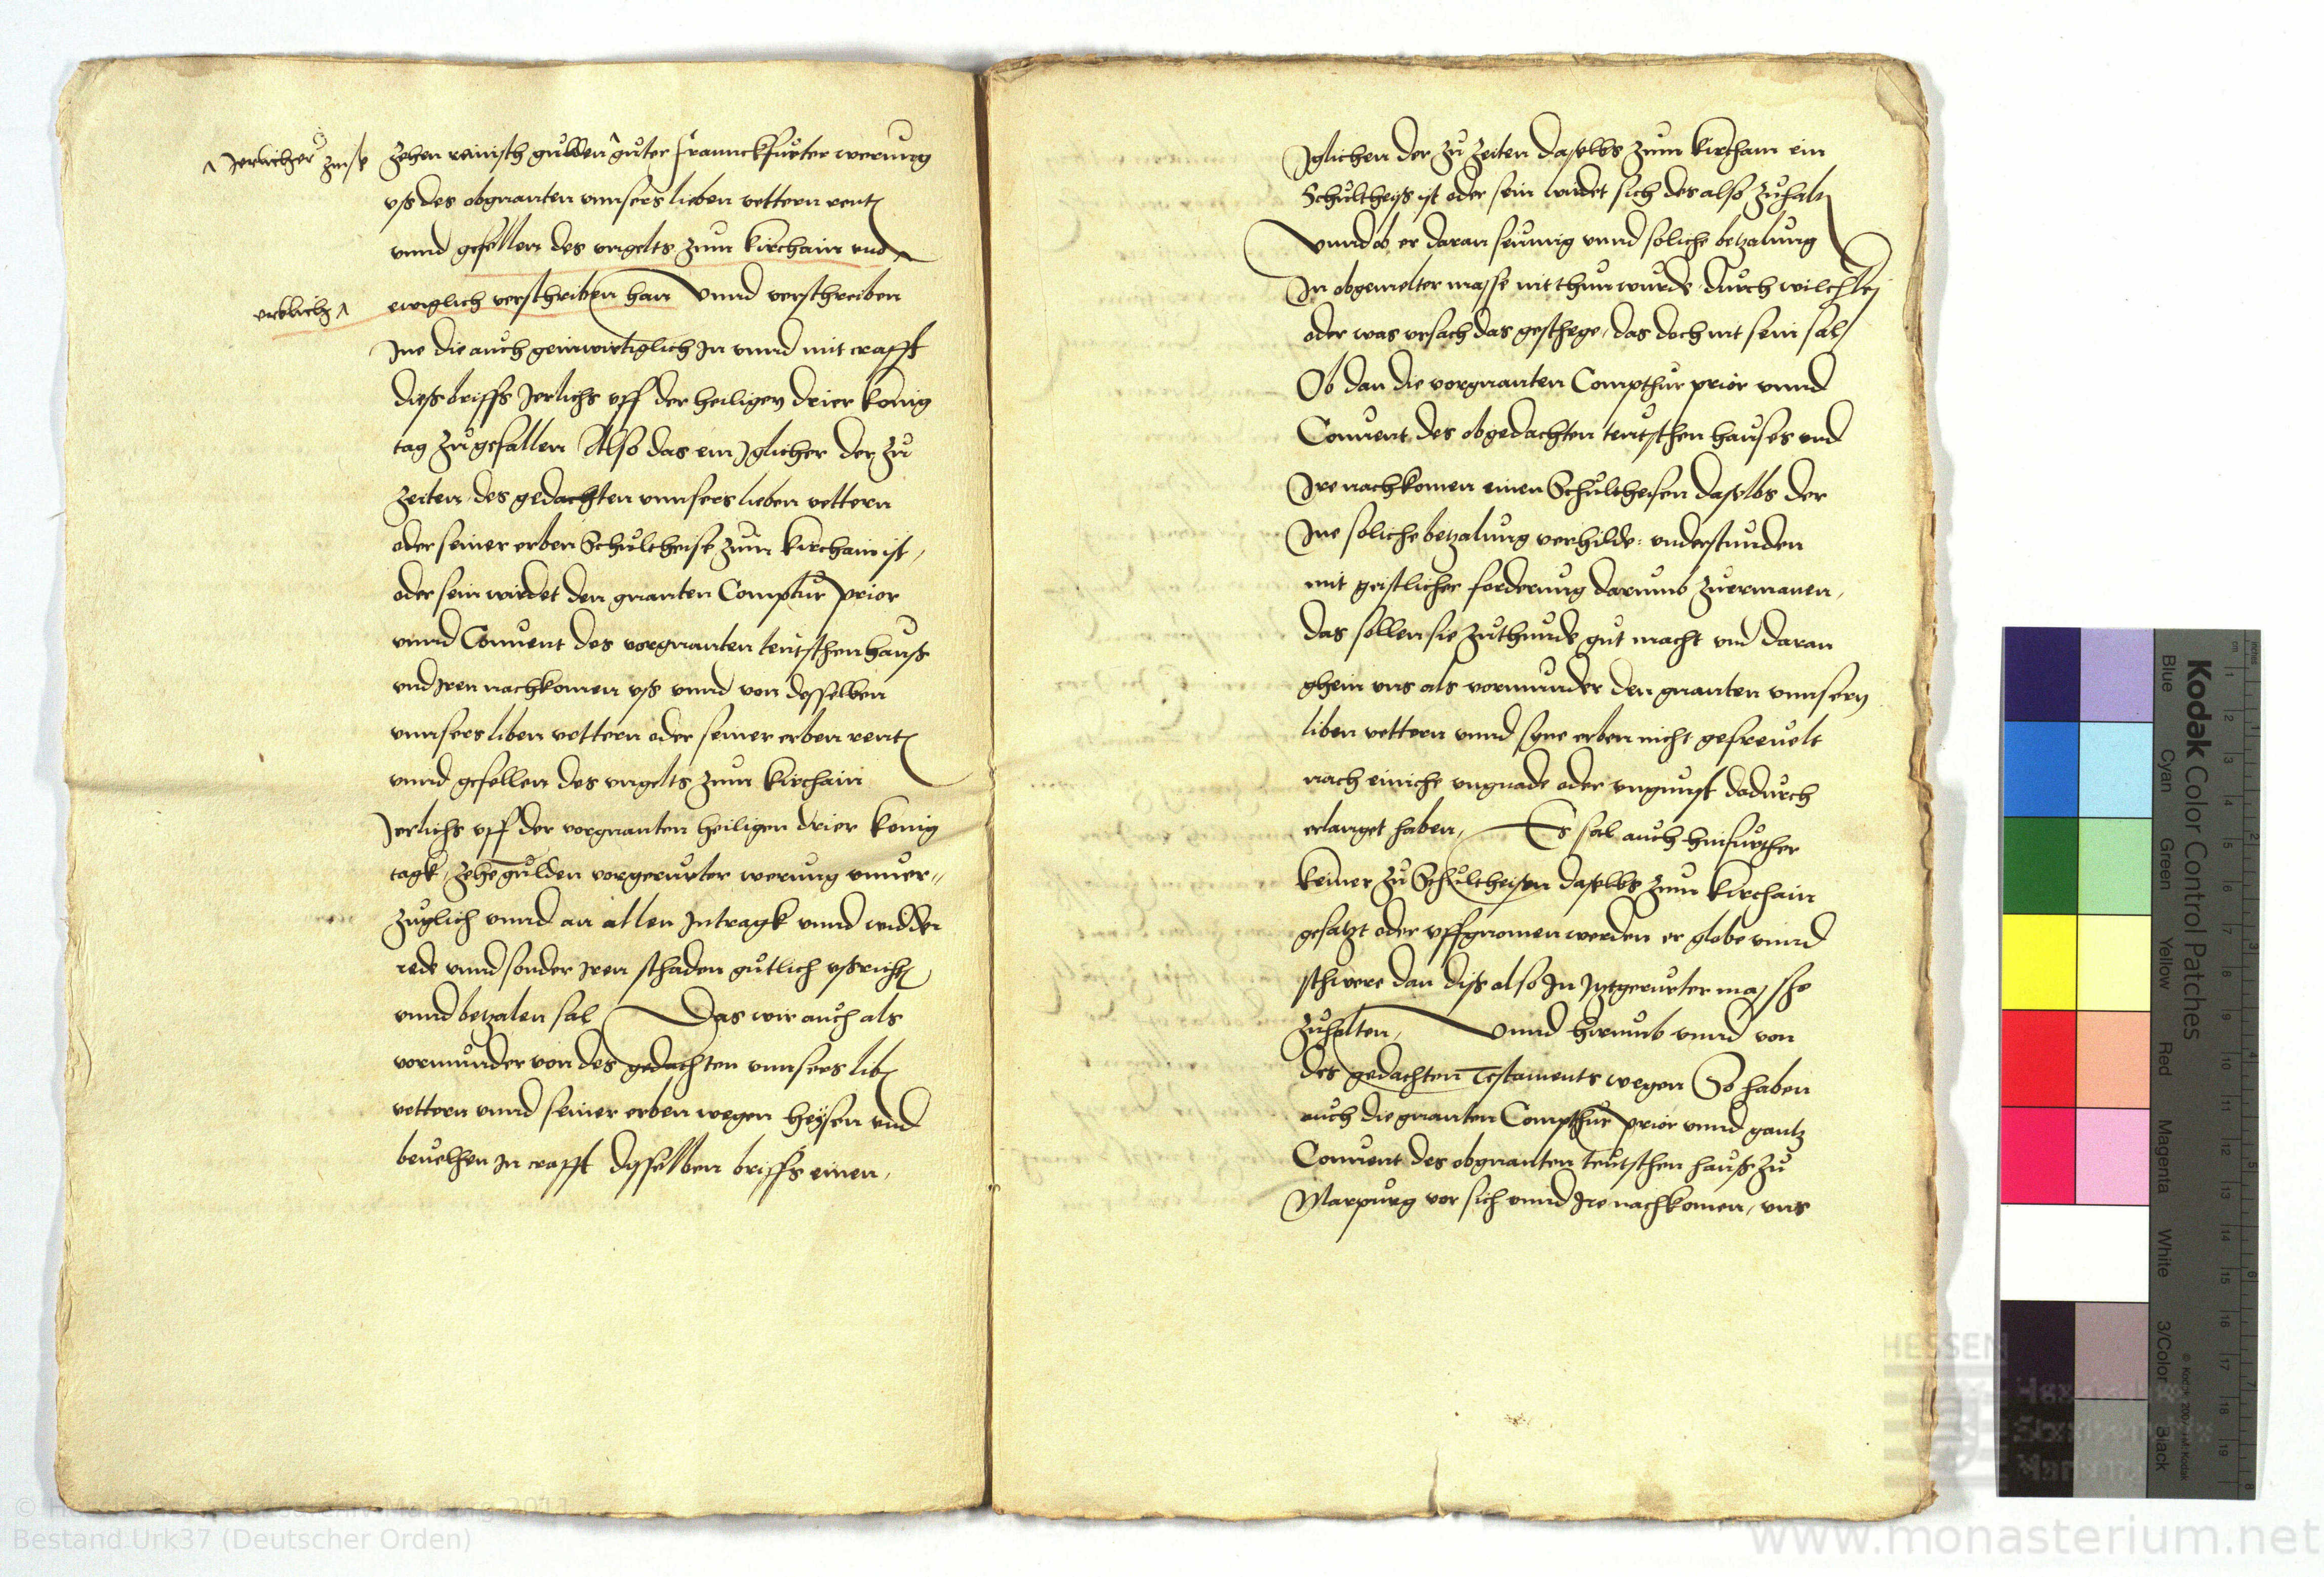 ^ Jerlicher zinse
zehen reinisch gulden ^ guter frannckfurter werung
vß des obgnanten vnnsers lieben vettern rent
vnnd gefellen des vngelts zum Kirchain vnd ^
vnköblich ^
ewiglich verschriben han Vnnd verschreiben
Jne die auch geinwirtiglich Jn vnnd mit crafft
dieß briffs Jerlichs vff der heiligen drier konig
tag zu gefallen Also das ein Jglicher der zu
zeiten des gedachten vnnsers lieben vettern
oder seiner erben Schultheise zum Kirchain ist,
oder sein wirdet den gnanten Comptur prior
vnnd Conuent des vorgnanten teutschen hauß
vnd Jren nachkomen vß vnnd von desselben
vnnsers liben vettern oder seiner erben rent
vnnd gefellen des vngelts zum Kirchain
Jerlichs vff der vorgnanten heiligen drier konig
tagk, zehe gulden vorgerurter werung vnuer"
zuglich vnnd an allen Jntragk vnnd widder
rede vnnd sonder Jren schaden gutlich vßricht
vnnd betzalen sal Das wir auch als
vormunder von des gedachten vnnsers lib
vettern vnnd seiner erben wegen heysen vnd
beuelhen Jn crafft desselben briffs einen,
Jglichen der zu zeiten daselbs zum Kirchain ein
Schultheiß ist oder sein wirdet sich des also zuhalt
Vnnd ob er daran seumig vnnd soliche betzalung
Jn obgemelter masse nit thun wurde durch wilcherlej
oder was vrsach das geschege, das doch nit sein sal,
Ob dan die vorgnanten Compthur prior vnnd
Conuent des obgedachten teutschen hauses vnd
Jre nachkomen einen Schultheisen daselbs der
Jne soliche betzalung verhilde: vnderstunden
mit geistlicher forderung darumb zuermanen,
das sollen sie zuthunde gut macht vnd daran
ghein vns als vormunder den gnanten vnnsern
liben vettern vnnd syne erben nicht gefreuelt
nach einiche vngnade oder vngunst dadurch
erlanget haben, Es sal auch hinfurther
keiner zu Schultheisen daselbs zum Kirchain
gesatzt oder vffgnomen werden er globe vnnd
schwere dan diß also Jn Jtzgerurter masshe
zuhalten, Vnnd hirumb vnnd von
des gedachten Testaments wegen So haben
auch die gnanten Compthur prior vnnd gantz
Conuent des obgnanten teutschen hauß zu
Marpurg vor sich vnnd Jre nachkomen, vns
Kodak Color Control Patches
Blue Cyan Green Yellow Red Magenta White 3/Color Black
HESSEN
Bestand Urk37 (Deutscher Orden)
www.monasterium.net